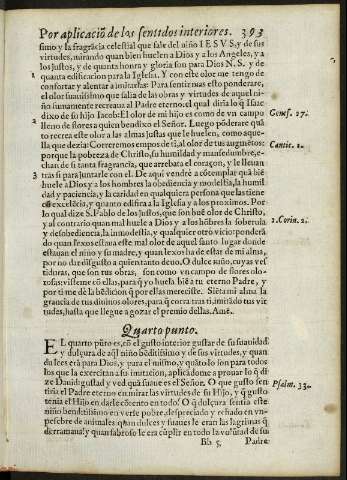 Por aplicaciō de los sentidos interiores. 393
simo y la fragrācia celestial que sale del niño IESVS, y de sus
virtudes, mirando quan bien huelen a Dios y a los Angeles, y a
los justos, y de quanta honra y gloria son para Dios N. S. y de
1 quanta edificacion para la Iglesia. Y con este olor me tengo de
confortar y alentar a imitarlas: Para sentir mas esto ponderare,
el olor suauissimo que salia de las obras y virtudes de aquel ni-
ño sumamente recreaua al Padre eterno. el qual diria lo q̄ Isaac
dixo de su hijo Iacob: El olor de mi hijo es como de vn campo
Genes. 27.
2 lleno de flores a quien bendixo el Señor. Luego pōderare quā-
to recrea este olor a las almas justas que le huelen, como aque-
lla que dezia: Corremos empos de ti, al olor de tus vngūetos:
Cantic. 1.
porque la pobreza de Christo, su humildad y mansedumbre, e-
chan de si tanta fragrancia, que arrebata el coraçon, y le lleuan
3 tras si para juntarle con el. De aqui vendre a cōtemplar quā biē
huele a Dios y a los hombres la obediencia y modestia, la humil
dad y paciencia, y la caridad en qualquiera persona que las tiene
cō excelēcia, y quanto edifica a la Iglesia y a los proximos. Por
lo qual dize S. Pablo de los justos, que son buē olor de Christo,
2. Corin. 2.
y al contrario quan mal huele a Dios y a los hōbres la soberuia
y desobediencia, la inmodestia, y qualquier otro vicio: ponderā
do quan lexos estaua este mal olor de aquel santo lugar donde
estauan el niño y su madre, y quan lexos ha de estar de mi alma,
por no dar disgusto a quien tanto deuo. O dulce niño, cuyas ves
tiduras, que son tus obras, son como vn campo de flores olo-
rosas: visteme cō ellas, para q̄ yo huela biē a tu eterno Padre, y
por ti me dē la bēdicion q̄ por ellas mereciste. Siēta mi alma la
fragancia de tus diuinos olores, para q̄ corra tras ti, imitādo tus vir
tudes, hasta que llegue a gozar el premio dellas. Amē.
Quarto punto.
EL quarto pūto es, cō el gusto interior gustar de su suauidad
y dulçura de aq̄l niño bēditissimo y de sus virtudes, y quan
dulces erā para Dios, y para el mismo, y quāto lo son para todos
los que la exercitan a su imitacion, aplicādome a prouar lo q̄ di-
ze Dauid: gustad y ved quā suaue es el Señor. O que gusto sen
Psalm. 33.
tiria el Padre eterno en mirar las virtudes de su Hijo, y q̄ gusto
tenia el Hijo en darle cōtento en todo! O q̄ dulçura sentia este
niño benditissimo en verse pobre, despreciado y echado en vn
pesebre de animales: quan dulces y suaues le eran las lagrimas q̄
derramaua! y quan sabroso le era cūplir en todo la volūtad de su
Bb 5 Padre